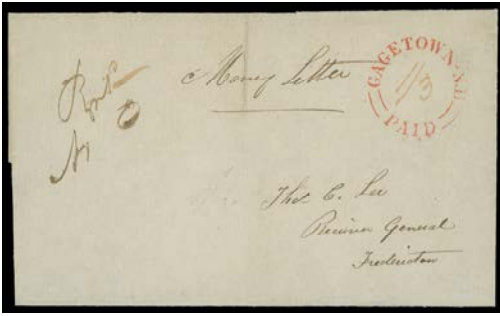 Money Letter
GAGETOWN·N.B
1/3
PAID
Thos. C. Lee
Receiver General
Fredericton